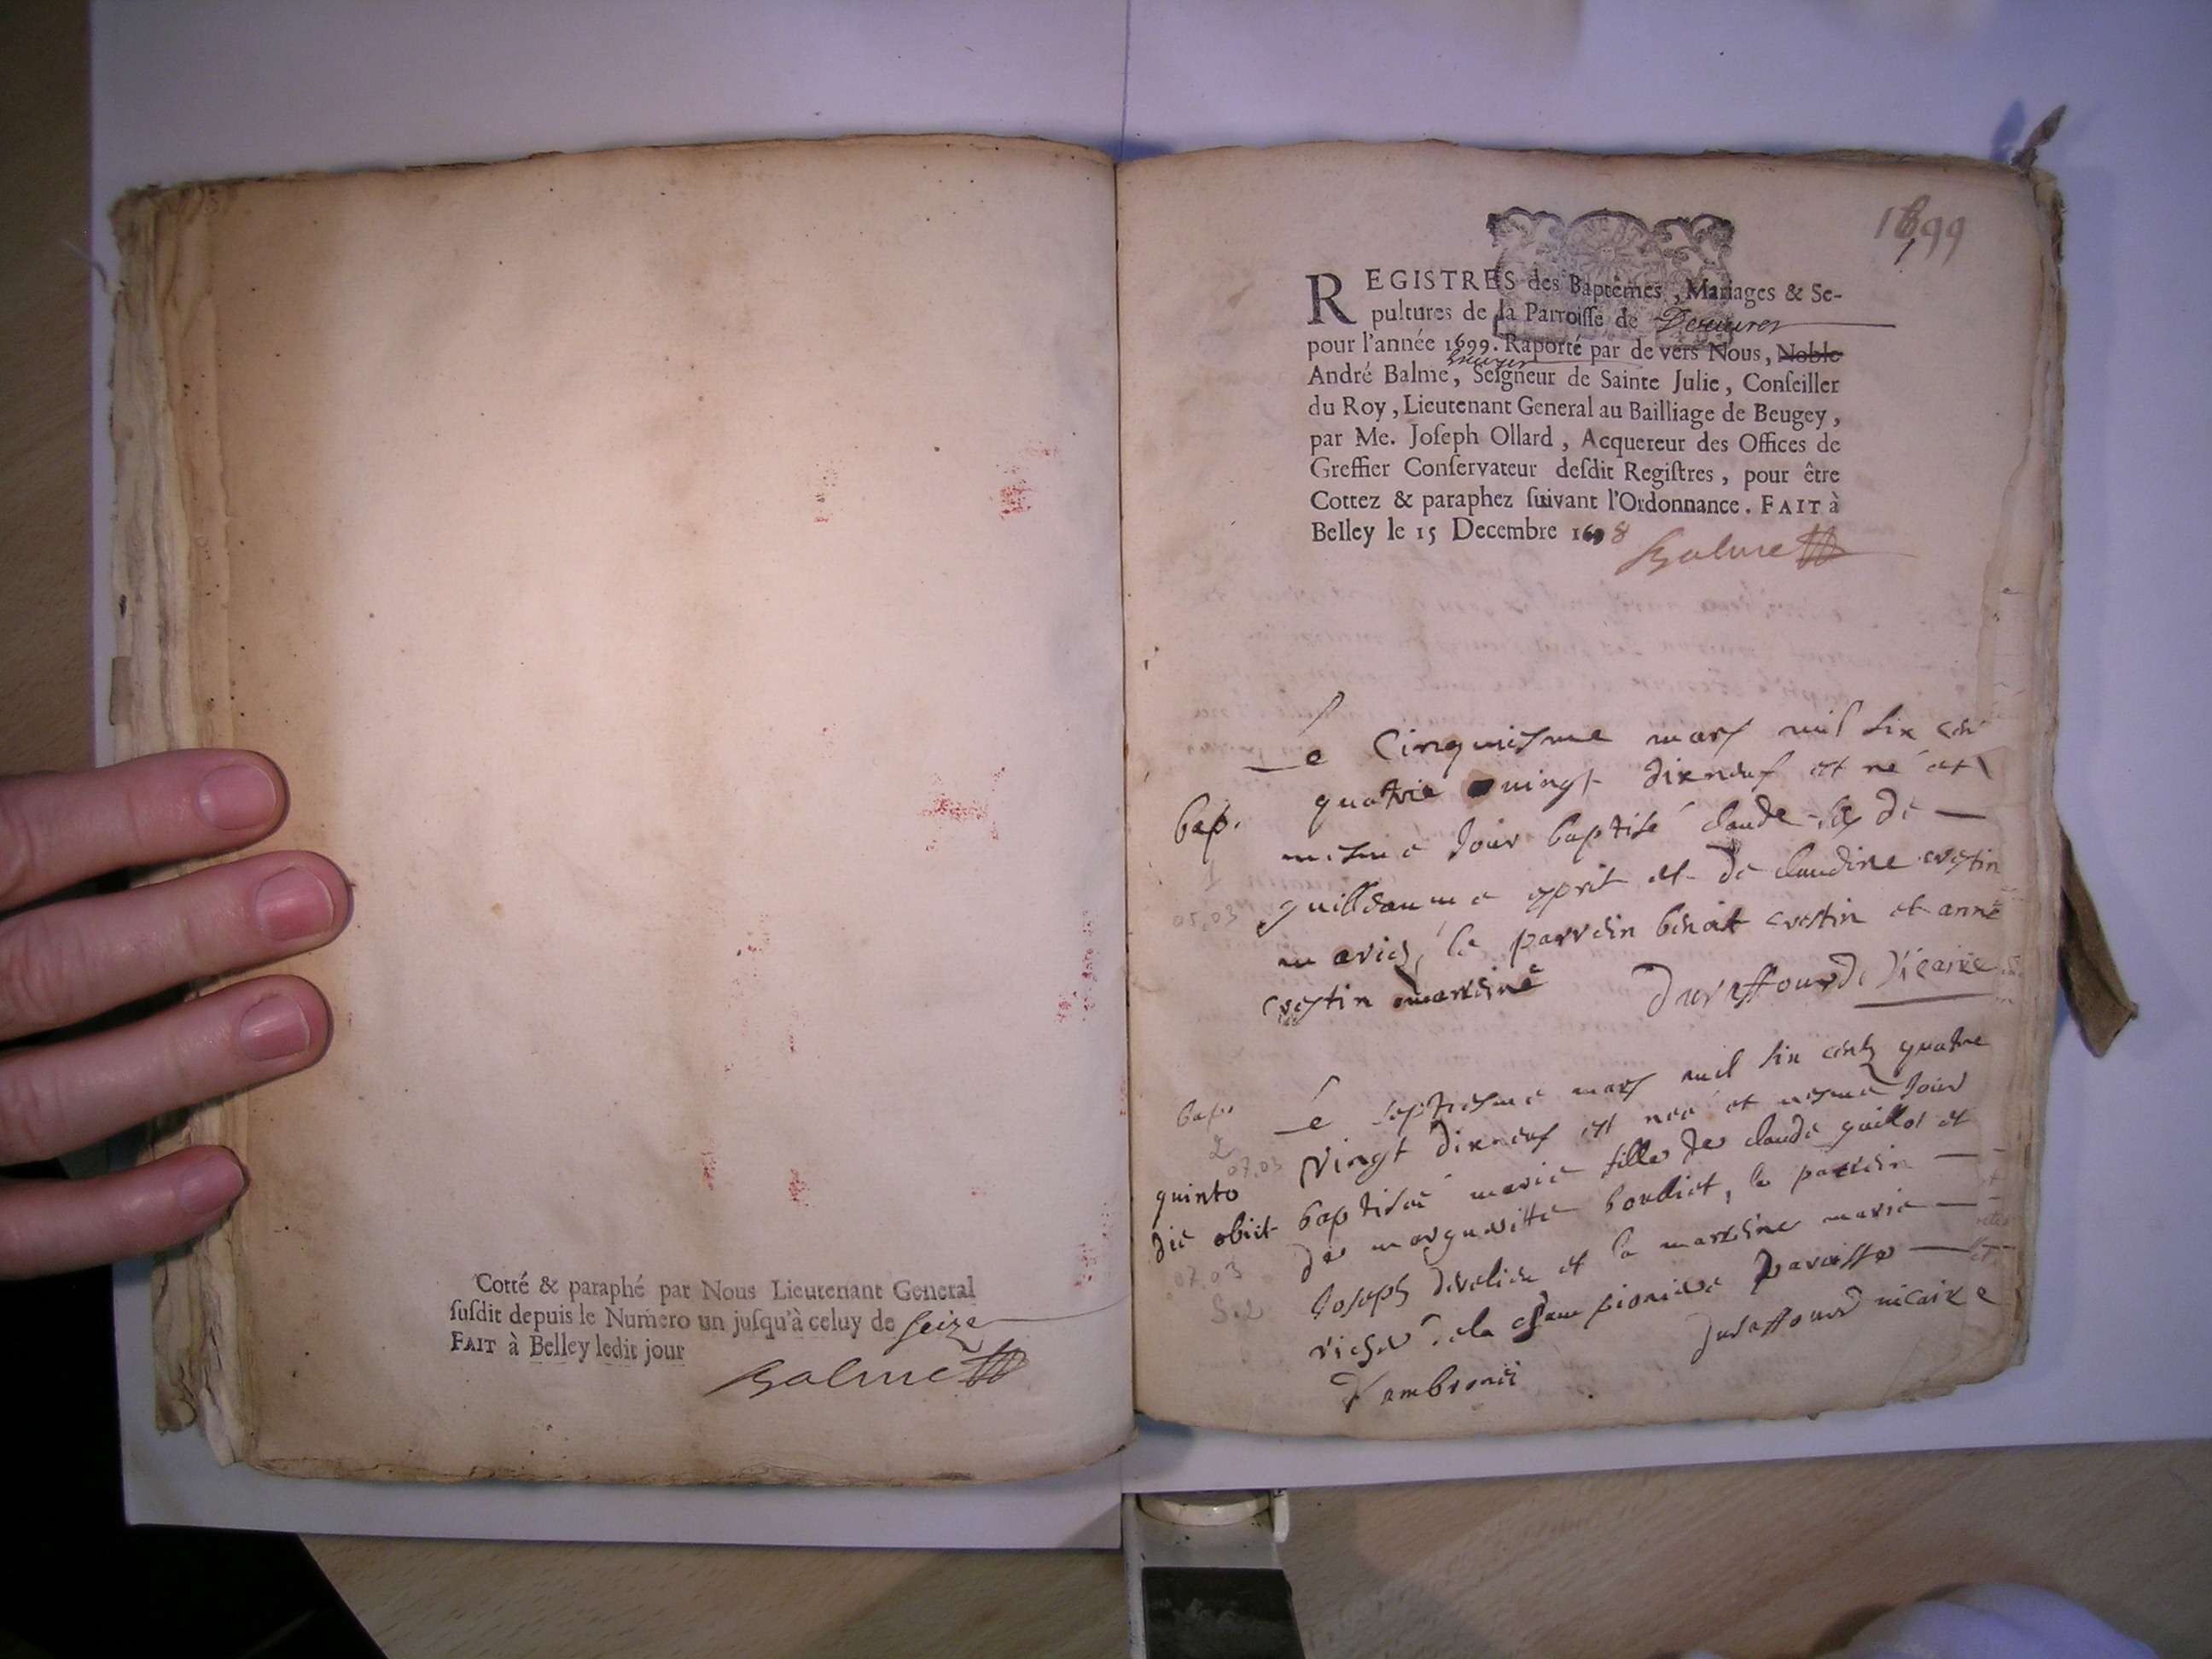 Cotté & paraphé par Nous Lieutenant General
suſdit depuis le Numero un juſqu'à celuy de seize
FAIT à Belley ledit jour
Balme
1699
REGISTRES des Baptêmes, Mariages & Se-
pultures de la Parroiſſe de
pour l'année 1699. Raporté par de vers Nous, Noble
André Balme, Seigneur de Sainte Julie, Conſeiller
du Roy, Lieutenant General au Bailliage de Beugey,
par Me. Joſeph Ollard, Acquereur des Offices de
Greffier Conſervateur deſdit Regiſtres, pour être
Cottez & paraphez ſuivant l'Ordonnance. FAIT à
Belley le 15 Decembre 1698
Balme
Le Cinquiesme mars mil six cen
quatre vingt dixneuf est né et
bap. mesme Jour baptisé claude fils de
1
05.03 guilleaume esprit et de claudine crestin
mariés, le parrein benoit crestin et anne
crestin marreine
vicaire
bap.
2
07.03
Le septiesme mars mil six cents quatre
Vingt dixneuf est neé et mesme Jour
quinto
die obiit
baptiseé marie fille de claude guillot et
de margueritte boudiet, le parrein
07.03
S.2
Joseph et la marreine marie
de la paroisse
vicaire
d'ambronei